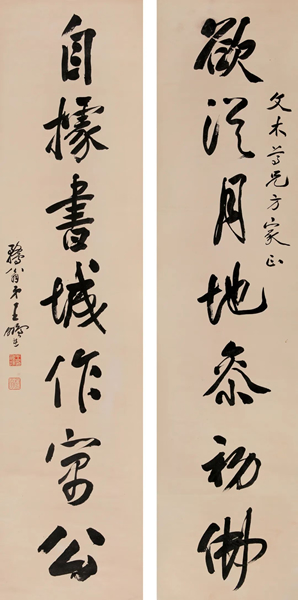 文木尊兄方家正
欲從月地參初佛
自據書城作寓公
鶩翁弟王鵬運